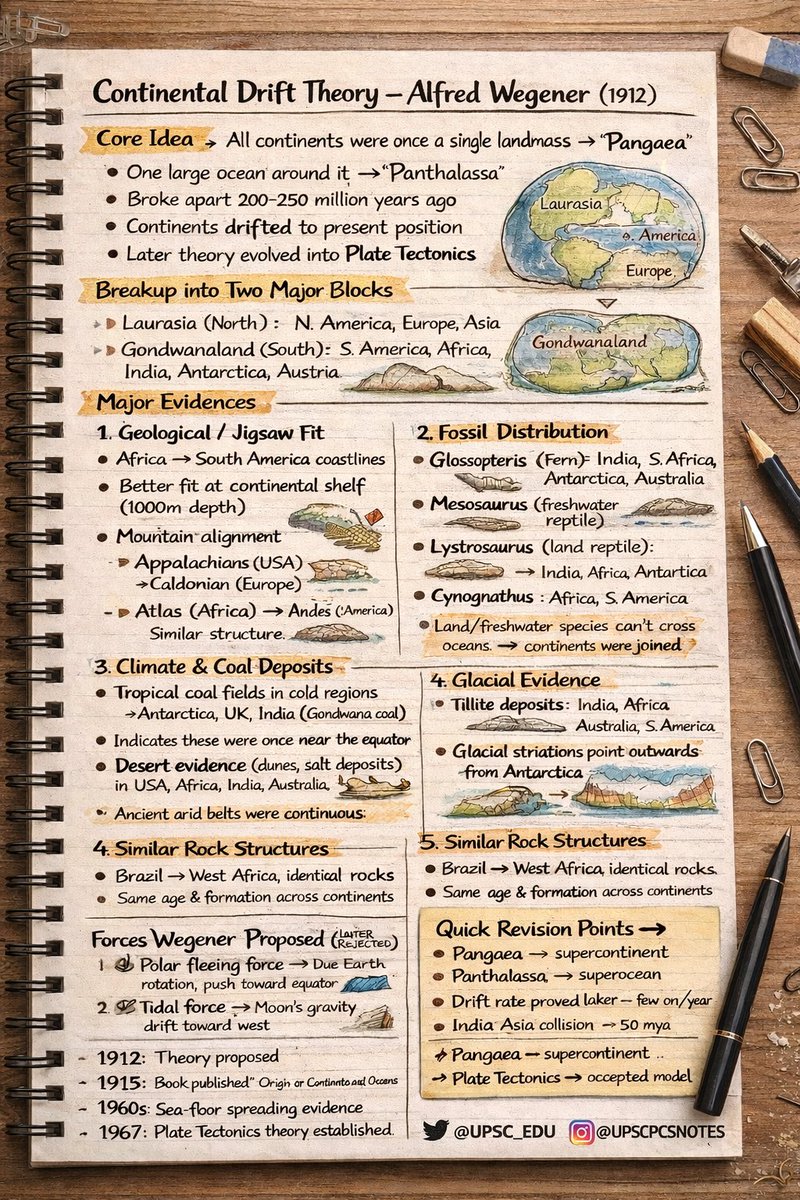 Continental Drift Theory – Alfred Wegener (1912)
Core Idea → All continents were once a single landmass → "Pangaea"
• One large ocean around it → "Panthalassa"
• Broke apart 200–250 million years ago
• Continents drifted to present position
• Later theory evolved into Plate Tectonics
Laurasia
America
Europe
Breakup into Two Major Blocks
Laurasia (North) : N. America, Europe, Asia
Gondwanaland (South): S. America, Africa,
India, Antarctica, Austria
Gondwanaland
Major Evidences
1. Geological / Jigsaw Fit
• Africa → South America coastlines
• Better fit at continental shelf
(1000m depth)
• Mountain alignment
- Appalachians (USA)
→ Caldonian (Europe)
- Atlas (Africa) → Andes ('America)
Similar structure.
2. Fossil Distribution
• Glossopteris (Fern)= India, S. Africa,
Antarctica, Australia
• Mesosaurus (freshwater
reptile)
• Lystrosaurus (land reptile):
→ India, Africa, Antartica
• Cynognathus : Africa, S. America
• Land/freshwater species can't cross
oceans. → continents were joined
3. Climate & Coal Deposits
• Tropical coal fields in cold regions
→ Antarctica, UK, India (Gondwana coal)
• Indicates these were once near the equator
• Desert evidence (dunes, salt deposits)
in USA, Africa, India, Australia,
• Ancient arid belts were continuous:
4. Glacial Evidence
• Tillite deposits: India, Africa
Australia, S. America
• Glacial striations point outwards
from Antarctica
4. Similar Rock Structures
• Brazil → West Africa, identical rocks
• Same age & formation across continents
5. Similar Rock Structures
• Brazil → West Africa, identical rocks.
• Same age & formation across continents
Forces Wegener Proposed (LATER
REJECTED)
1 Polar fleeing force → Due Earth
rotation, push toward equator
2. Tidal force → Moon's gravity
drift toward west
- 1912: Theory proposed
- 1915: Book published" Origin or
- 1960s: Sea-floor spreading evidence
- 1967: Plate Tectonics theory established.
Quick Revision Points →
• Pangaea → supercontinent
• Panthalassa → superocean
• Drift rate proved laker – few on/year
• India Asia collision → 50 mya
→ Pangaea — supercontinent ..
→ Plate Tectonics → occepted model
@UPSC_EDU @UPSCPCSNOTES